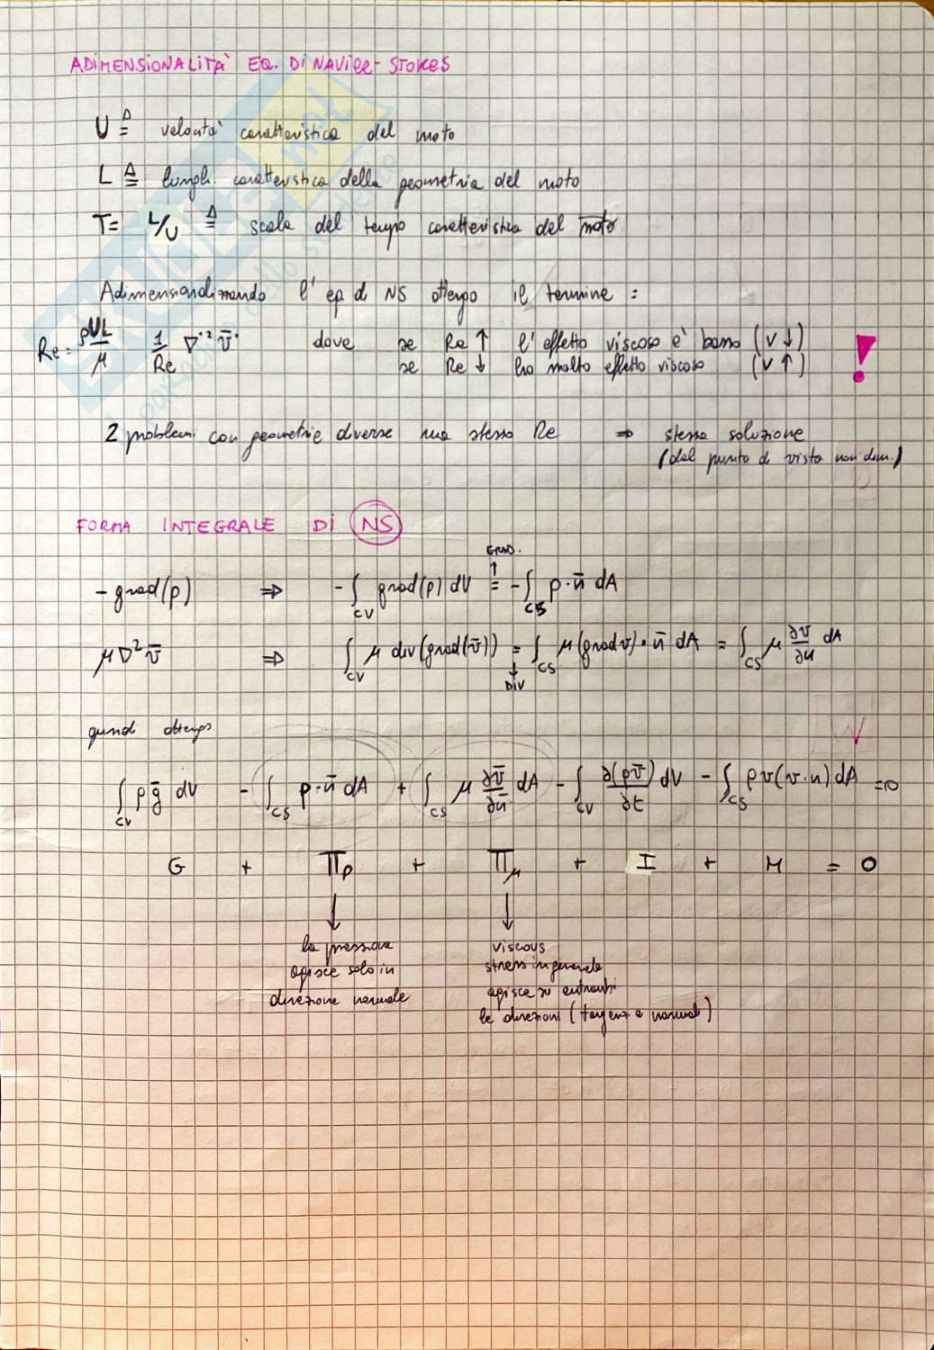 ADIMENSIONALITA' EQ. DI NAVIER-STOKES
U ≜ velocità caratteristica del moto
L ≜ lungh. caratteristica della geometria del moto
T= L/U ≜ scala del tempo caratteristica del moto
Adimensionalizzando l'eq di NS ottengo il termine :
Re = ρUL/μ 1/Re ∇*² v̄* dove se Re ↑ l'effetto viscoso è basso (v ↓) !
se Re ↓ ho molto effetto viscoso (v ↑)
2 problemi con geometrie diverse ma stesso Re ⇒ stessa soluzione
(dal punto di vista non dim.)
FORMA INTEGRALE DI NS
GRAD.
- grad(p) ⇒ -∫CV grad(p) dV = -∫CS p·n̄ dA
μ∇²v̄ ⇒ ∫CV μ div(grad(v̄)) = ∫CS μ(grad v)·n̄ dA = ∫CS μ ∂v̄/∂n dA
DIV
quindi ottengo
∫CV ρḡ dV - ∫CS p·n̄ dA + ∫CS μ ∂v̄/∂n̄ dA - ∫CV ∂(ρv̄)/∂t dV - ∫CS ρv(v·n) dA = 0
G + Πp + Πμ + I + M = 0
la pressione
agisce solo in
direzione normale
viscous
stress in generale
agisce su entrambi
le direzioni (tangenz e normali)